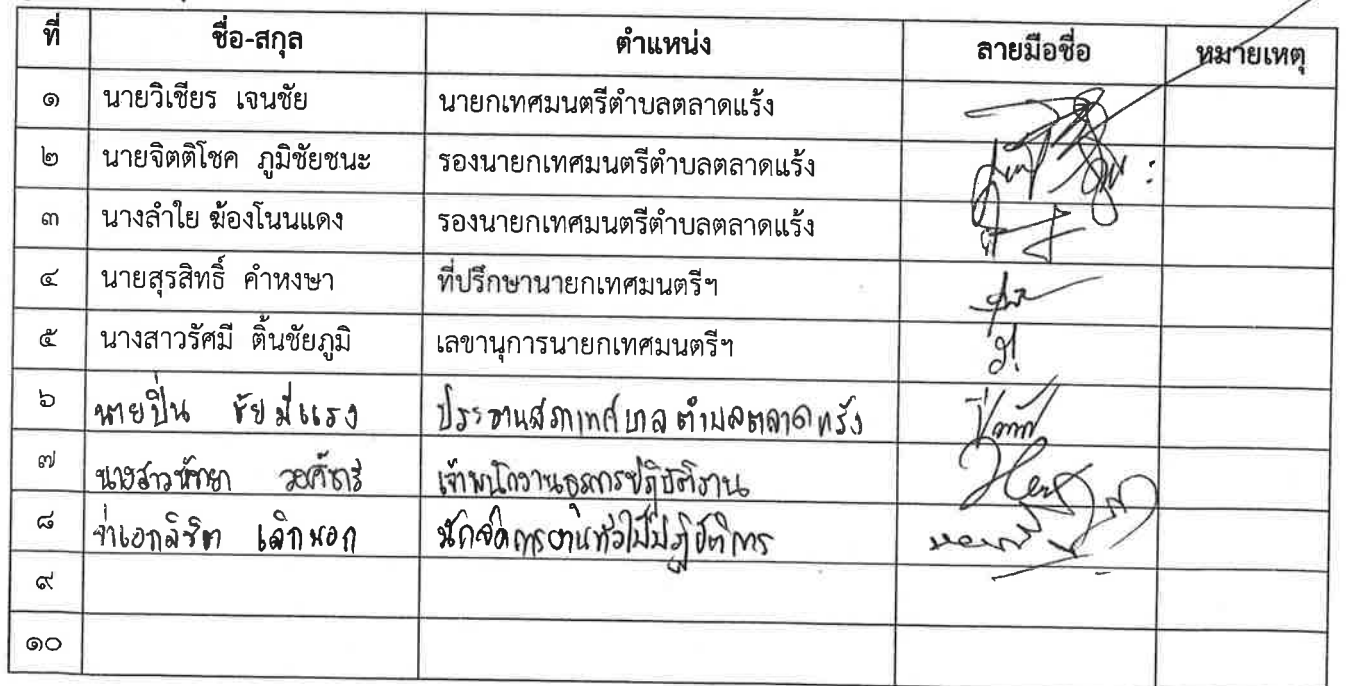 ที่ ชื่อ-สกุล ตำแหน่ง ลายมือชื่อ หมายเหตุ
๑ นายวิเชียร เจนชัย นายกเทศมนตรีตำบลตลาดแร้ง
๒ นายจิตติโชค ภูมิชัยชนะ รองนายกเทศมนตรีตำบลตลาดแร้ง
๓ นางลำใย ฆ้องโนนแดง รองนายกเทศมนตรีตำบลตลาดแร้ง
๔ นายสุรสิทธิ์ คำหงษา ที่ปรึกษานายกเทศมนตรีฯ
๕ นางสาวรัศมี ติ้นชัยภูมิ เลขานุการนายกเทศมนตรีฯ
๖ นายปิ่น ชัยมีแรง ประธานสภาเทศบาลตำบลตลาดแร้ง
๗ นางสาว เจ้าพนักงานธุรการปฏิบัติงาน
๘ จ่าเอก นักจัดการงานทั่วไปปฏิบัติการ
๙
๑๐